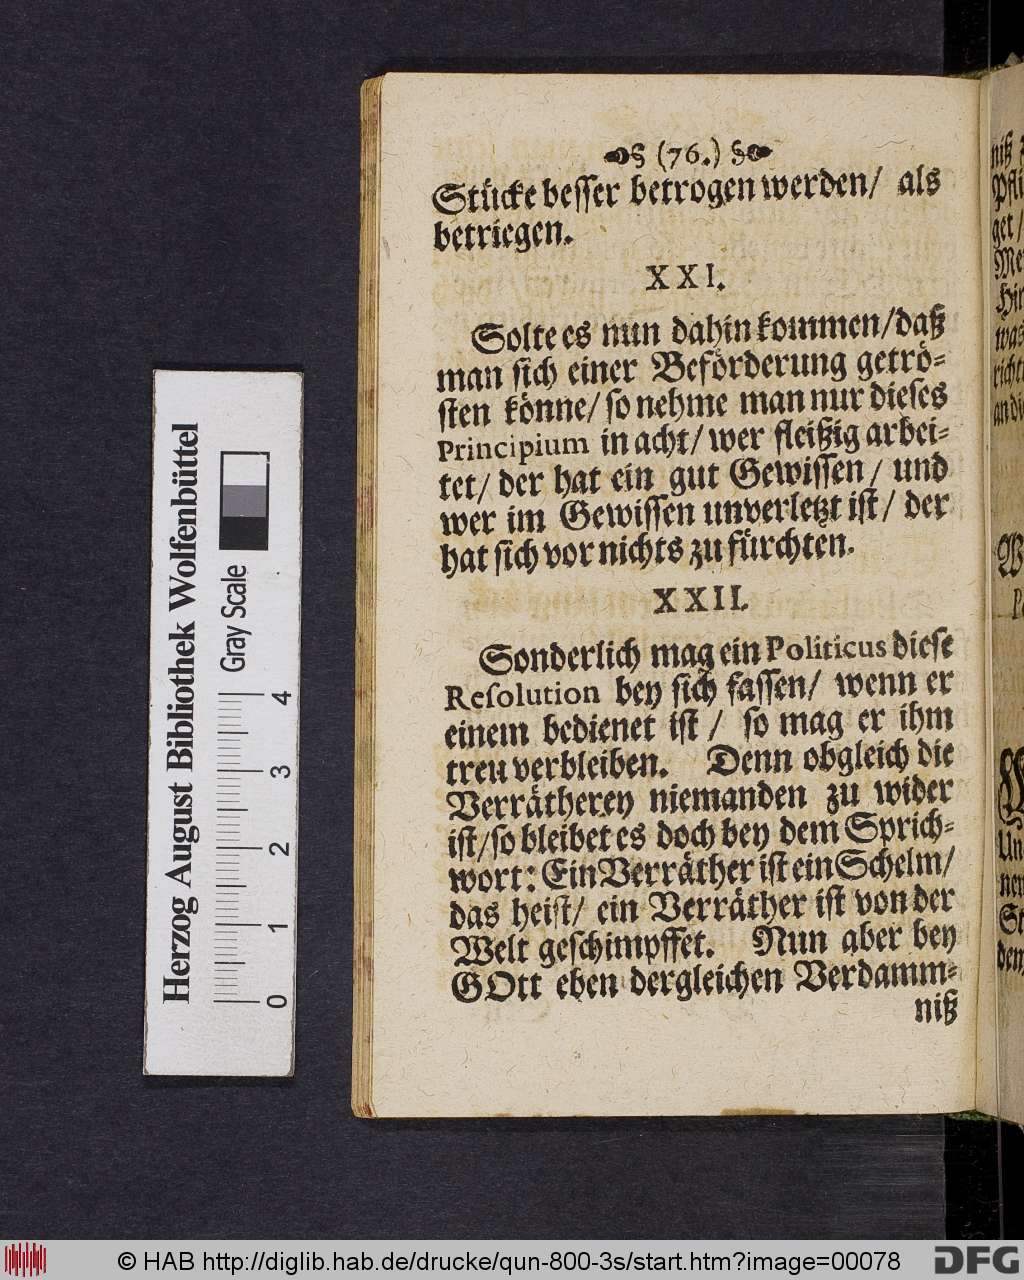 (76.)
Stücke besser betrogen werden/ als
betriegen.
XXI.
Solte es nun dahin kommen/daß
man sich einer Beförderung getrö-
sten könne/ so nehme man nur dieses
Principium in acht/ wer fleißig arbei-
tet/ der hat ein gut Gewissen/ und
wer im Gewissen unverletzt ist/ der
hat sich vor nichts zu fürchten.
XXII.
Sonderlich mag ein Politicus diese
Resolution bey sich fassen/ wenn er
einem bedienet ist/ so mag er ihm
treu verbleiben. Denn obgleich die
Verrätherey niemanden zu wider
ist/so bleibet es doch bey dem Sprich-
wort: Ein Verräther ist ein Schelm/
das heist/ ein Verräther ist von der
Welt geschimpffet. Nun aber bey
GOtt eben dergleichen Verdamm-
niß
Herzog August Bibliothek Wolfenbüttel
Gray Scale
0 1 2 3 4
© HAB http://diglib.hab.de/drucke/qun-800-3s/start.htm?image=00078
DFG